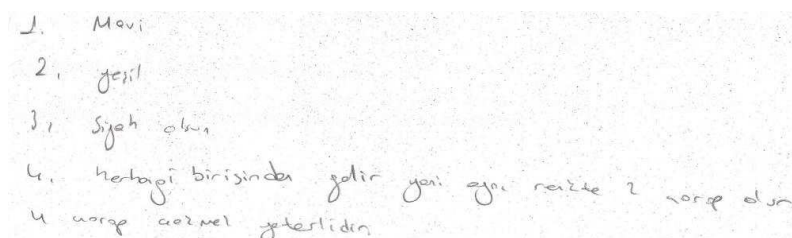 1. Mavi
2. yeşil
3. siyah olsun
4. herhagi birisinden gelir yani aynı renkte 2 çorap olur
4 çorap çekmek yeterlidir.